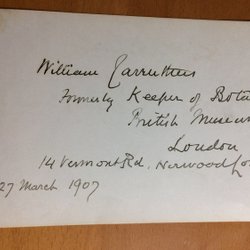 William Carruthers
Formerly Keeper of Bota
British Museum
London
14 Vermont Rd. Norwood Lo
27 March 1907